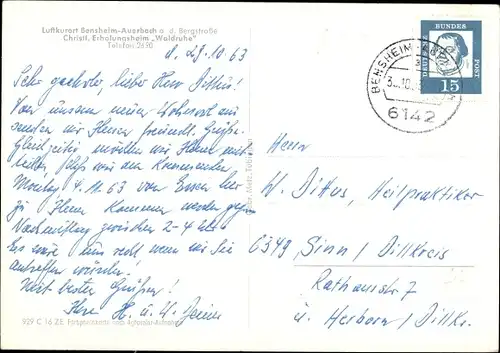 Luftkurort Bensheim-Auerbach a. d. Bergstraße
Christl. Erholungsheim „Waldruhe"
Telefon 2850
d. 29.10.63
Sehr geehrter, lieber Herr Dittus!
Von unserem neuen Wohnort aus
senden wir Ihnen freundl. Grüße.
Gleichzeitig möchten wir Ihnen mit-
teilen, daß wir am kommenden
Montag 4.11.63 von Essen her
zu Ihnen kommen werden gegen
Nachmittag zwischen 2-4 Uhr.
Es wäre uns recht, wenn wir Sie
antreffen würden.
Mit besten Grüßen!
Ihre H. u. W.
929 C 16 ZE
BENSHEIM
6142
DEUTSCHE BUNDESPOST
15
Herrn
W. Dittus, Heilpraktiker
6349 Sinn / Dillkreis
Rathausstr. 7
ü. Herborn / Dillkr.